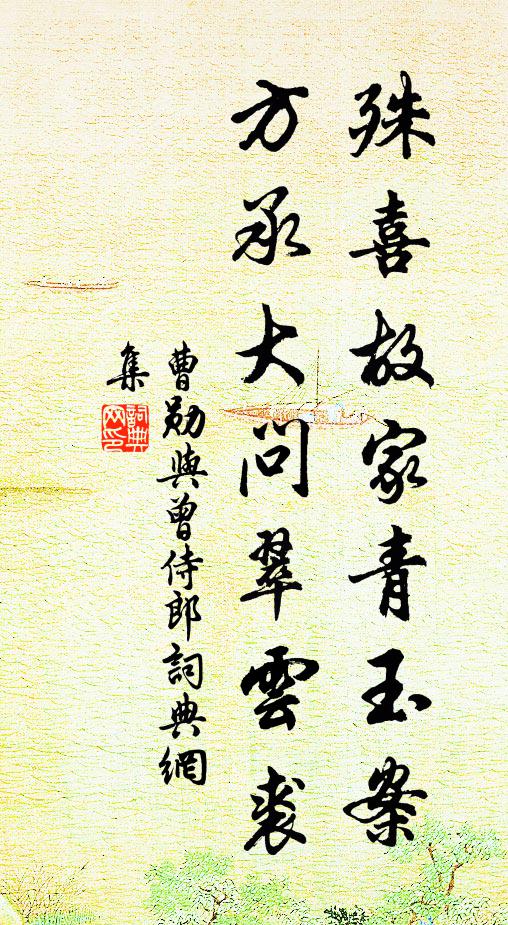 殊喜故家青玉案
方承大問翠雲裘
曹勛與曾侍郎詞典網
集
詞典
网印